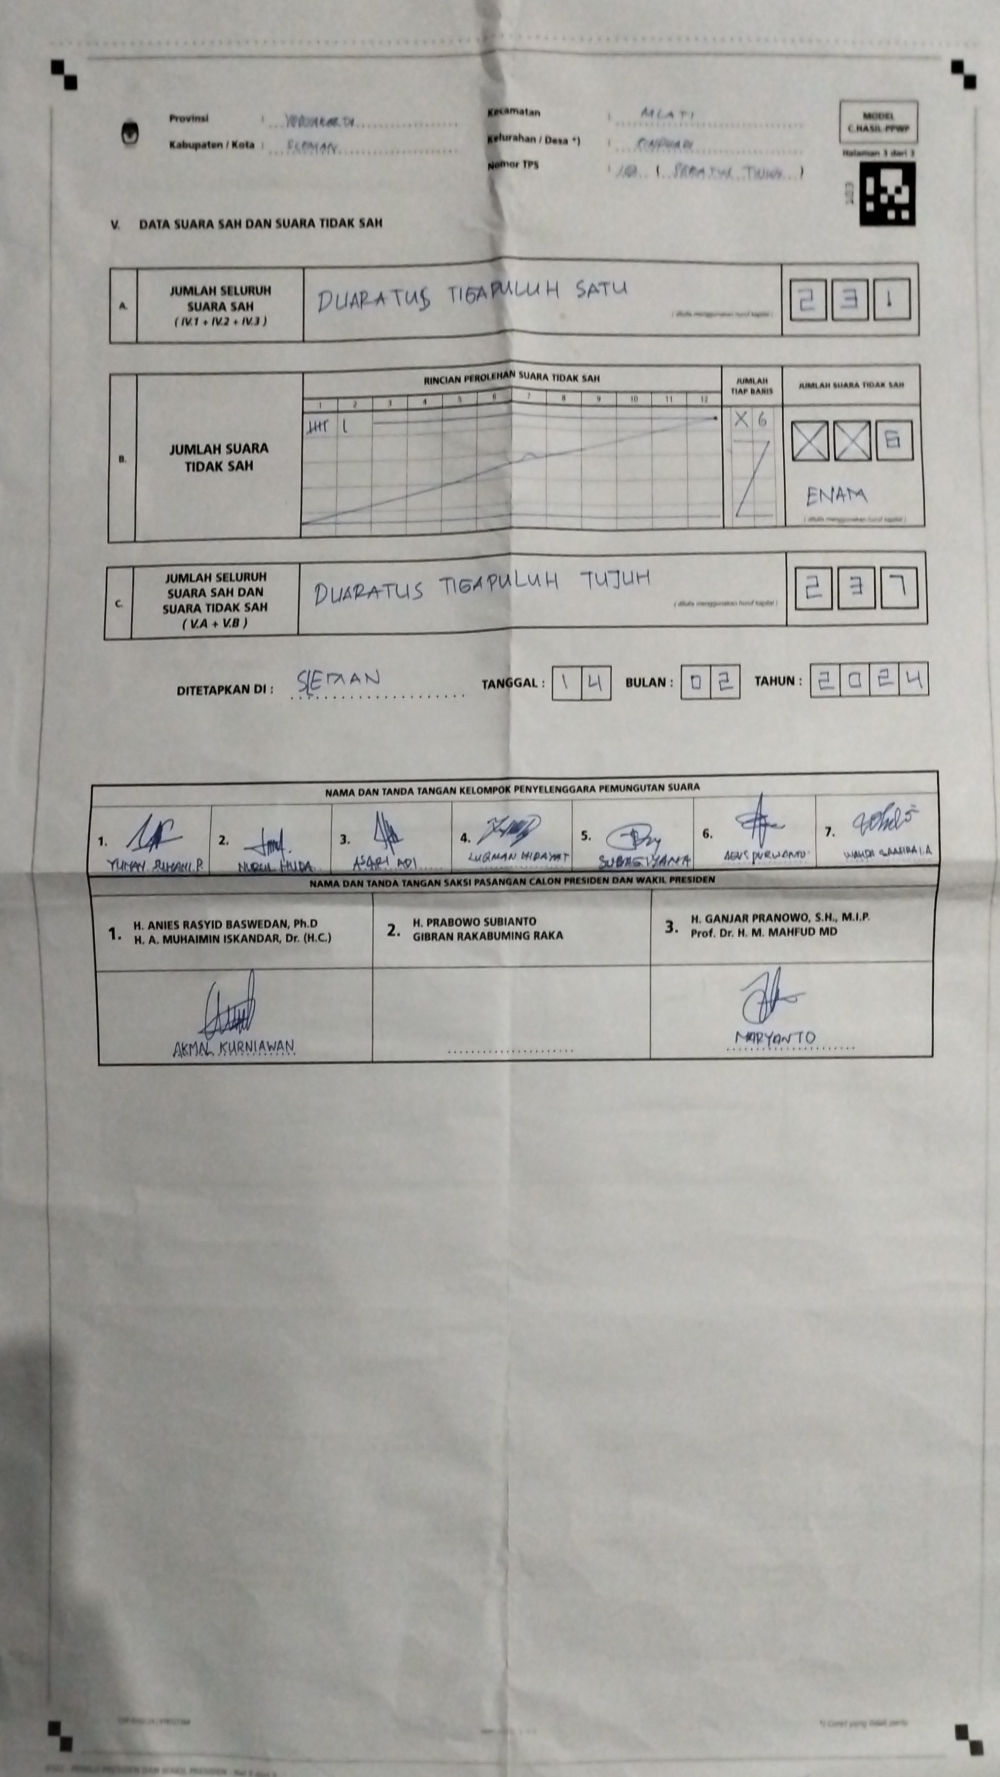 Provinsi : YOGYAKARTA
Kabupaten / Kota : SLEMAN
Kecamatan : MLATI
Kelurahan / Desa *) :
Nomor TPS : ( SERATUS TUJUH )
MODEL
C.HASIL-PPWP
Halaman 3 dari 3
V. DATA SUARA SAH DAN SUARA TIDAK SAH
A. JUMLAH SELURUH
SUARA SAH
( IV.1 + IV.2 + IV.3 )
DUARATUS TIGAPULUH SATU
( ditulis menggunakan huruf kapital )
2 3 1
B. JUMLAH SUARA
TIDAK SAH
RINCIAN PEROLEHAN SUARA TIDAK SAH
1 2 3 4 5 6 7 8 9 10 11 12
JUMLAH
TIAP BARIS
X 6
JUMLAH SUARA TIDAK SAH
X X 6
ENAM
( ditulis menggunakan huruf kapital )
C. JUMLAH SELURUH
SUARA SAH DAN
SUARA TIDAK SAH
( V.A + V.B )
DUARATUS TIGAPULUH TUJUH
( ditulis menggunakan huruf kapital )
2 3 7
DITETAPKAN DI : SLEMAN TANGGAL : 1 4 BULAN : 0 2 TAHUN : 2 0 2 4
NAMA DAN TANDA TANGAN KELOMPOK PENYELENGGARA PEMUNGUTAN SUARA
1. 2. 3. 4. 5. 6. 7.
NURUL HUDA ASARI ADI LUQMAN HIDAYAT SUBAGIYANA AGUS PURWANTO
NAMA DAN TANDA TANGAN SAKSI PASANGAN CALON PRESIDEN DAN WAKIL PRESIDEN
1. H. ANIES RASYID BASWEDAN, Ph.D
H. A. MUHAIMIN ISKANDAR, Dr. (H.C.)
2. H. PRABOWO SUBIANTO
GIBRAN RAKABUMING RAKA
3. H. GANJAR PRANOWO, S.H., M.I.P.
Prof. Dr. H. M. MAHFUD MD
AKMAL KURNIAWAN
MARYANTO
*) Coret yang tidak perlu